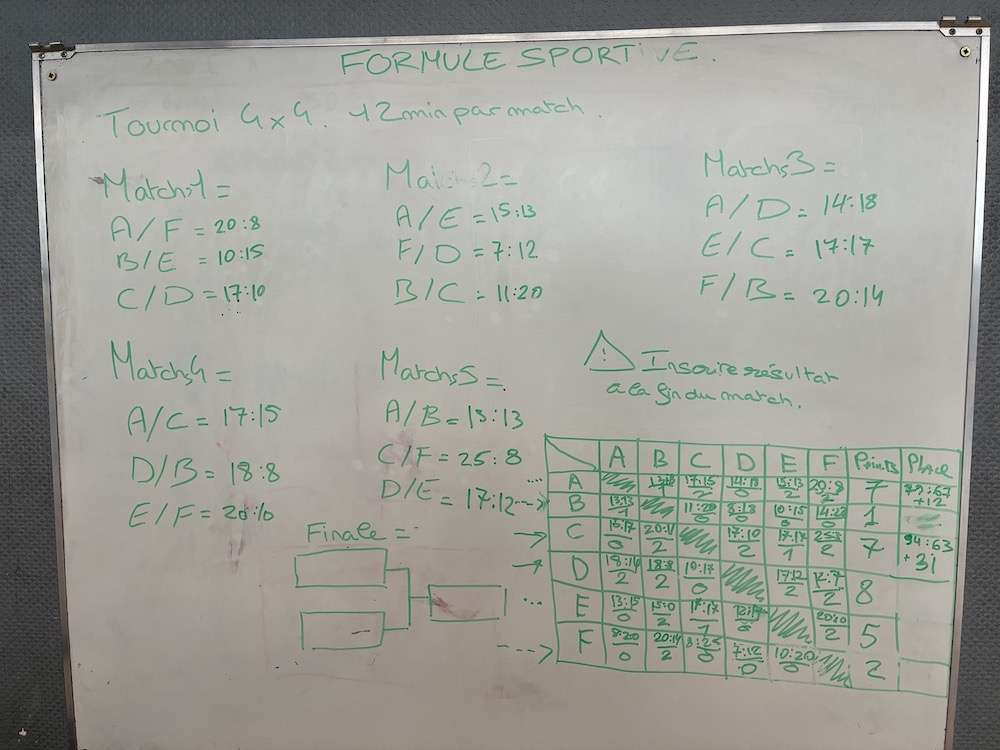 FORMULE SPORTIVE.
Tournoi 4x4. 12 min par match.
Matchs1 =
A/F = 20:8
B/E = 10:15
C/D = 17:10
Matchs2 =
A/E = 15:13
F/D = 7:12
B/C = 11:20
Matchs3 =
A/D = 14:18
E/C = 17:17
F/B = 20:14
Matchs4 =
A/C = 17:15
D/B = 18:8
E/F = 20:10
Matchs5 =
A/B = 13:13
C/F = 25:8
D/E = 17:12
! Inscrire résultat
a la fin du match.
Finale =
A B C D E F Points Place
A 17:15 2 14:18 0 15:13 2 20:8 2 7 79:67 +12
B 13:13 1 11:20 0 8:18 0 10:15 0 14:20 0 1
C 15:17 0 20:11 2 17:10 2 17:17 1 25:8 2 7 94:63 +31
D 18:14 2 18:8 2 10:17 0 17:12 2 12:7 2 8
E 13:15 0 2 17:17 1 12:17 0 20:10 2 5
F 8:20 0 20:14 2 8:25 0 7:12 0 10:20 0 2